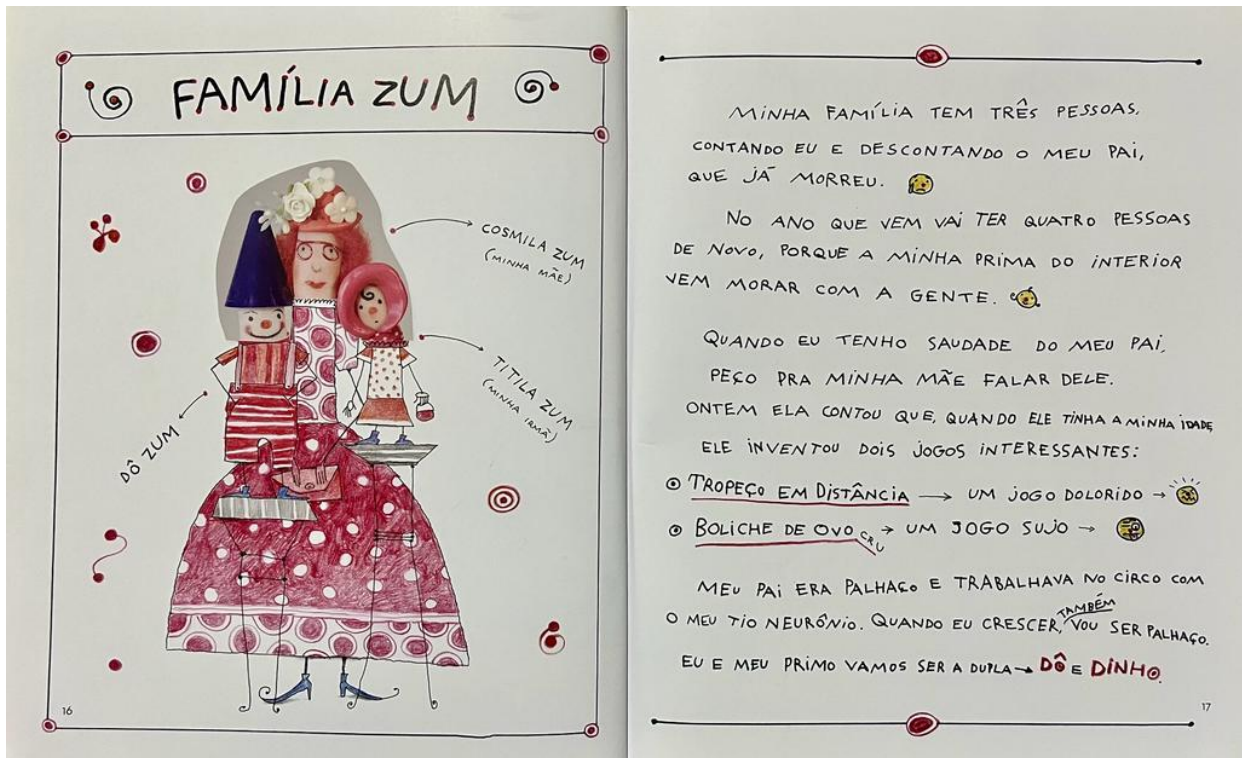 FAMÍLIA ZUM
COSMILA ZUM
(MINHA MÃE)
TITILA ZUM
(MINHA IRMÃ)
DÔ ZUM
16
MINHA FAMÍLIA TEM TRÊS PESSOAS,
CONTANDO EU E DESCONTANDO O MEU PAI,
QUE JÁ MORREU.
NO ANO QUE VEM VAI TER QUATRO PESSOAS
DE NOVO, PORQUE A MINHA PRIMA DO INTERIOR
VEM MORAR COM A GENTE.
QUANDO EU TENHO SAUDADE DO MEU PAI,
PEÇO PRA MINHA MÃE FALAR DELE.
ONTEM ELA CONTOU QUE, QUANDO ELE TINHA A MINHA IDADE,
ELE INVENTOU DOIS JOGOS INTERESSANTES:
TROPEÇO EM DISTÂNCIA → UM JOGO DOLORIDO →
BOLICHE DE OVO CRU → UM JOGO SUJO →
MEU PAI ERA PALHAÇO E TRABALHAVA NO CIRCO COM
O MEU TIO NEURÔNIO. QUANDO EU CRESCER, TAMBÉM VOU SER PALHAÇO.
EU E MEU PRIMO VAMOS SER A DUPLA → DÔ E DINHO.
17